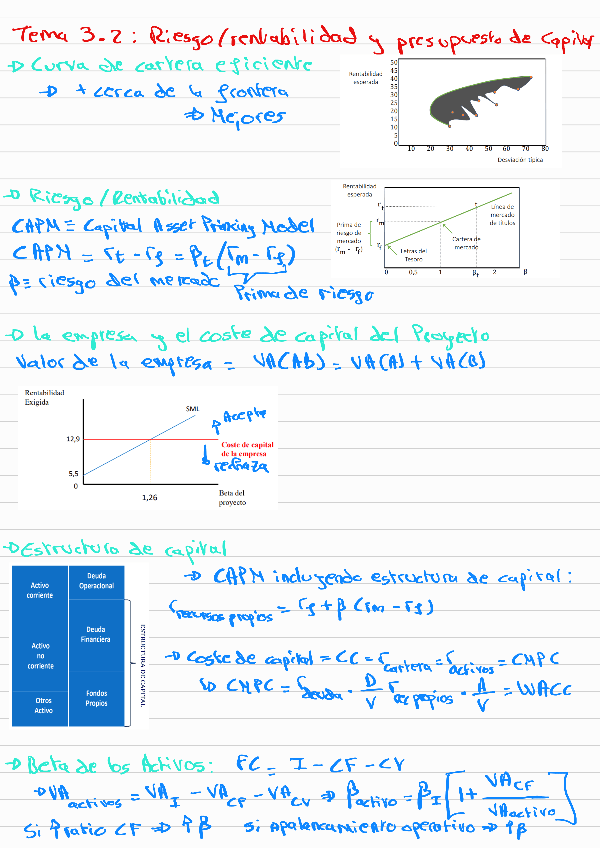 Tema 3.2: Riesgo/rentabilidad y presupuesto de Capital
→ Curva de cartera eficiente
→ + cerca de la frontera
⇒ Mejores
Rentabilidad
esperada
50
45
40
35
30
25
20
15
10
5
0
10 20 30 40 50 60 70 80
Desviación típica
→ Riesgo/Rentabilidad
CAPM ≡ Capital Asset Princing Model
CAPM = rt - rf = βt (rm - rf)
β ≡ riesgo del mercado
Prima de riesgo
Rentabilidad
esperada
rt
rm
rf
Prima de
riesgo de
mercado
(rm - rf)
Línea de
mercado
de títulos
Cartera de
mercado
Letras del
Tesoro
0 0,5 1 βt 2 β
→ La empresa y el coste de capital del Proyecto
Valor de la empresa = VA(AB) = VA(A) + VA(B)
Rentabilidad
Exigida
SML
↑ Acepta
12,9
Coste de capital
de la empresa
↓ rechaza
5,5
0
1,26
Beta del
proyecto
→ Estructura de capital
Activo
corriente
Deuda
Operacional
Activo
no
corriente
Deuda
Financiera
Otros
Activo
Fondos
Propios
ESTRUCTURA DE CAPITAL
→ CAPM incluyendo estructura de capital:
r recursos propios = rf + β (rm - rf)
→ Coste de capital = CC = r cartera = r activos = CMPC
↳ CMPC = r deuda · D/V r rec propios · A/V = WACC
→ Beta de los Activos: FC = I - CF - CV
→ VA activos = VA I - VA CF - VA CV ⇒ β activo = β I [1 + VA CF / VA activo]
Si ↑ ratio CF ⇒ ↑β si apalancamiento operativo ⇒ ↑β